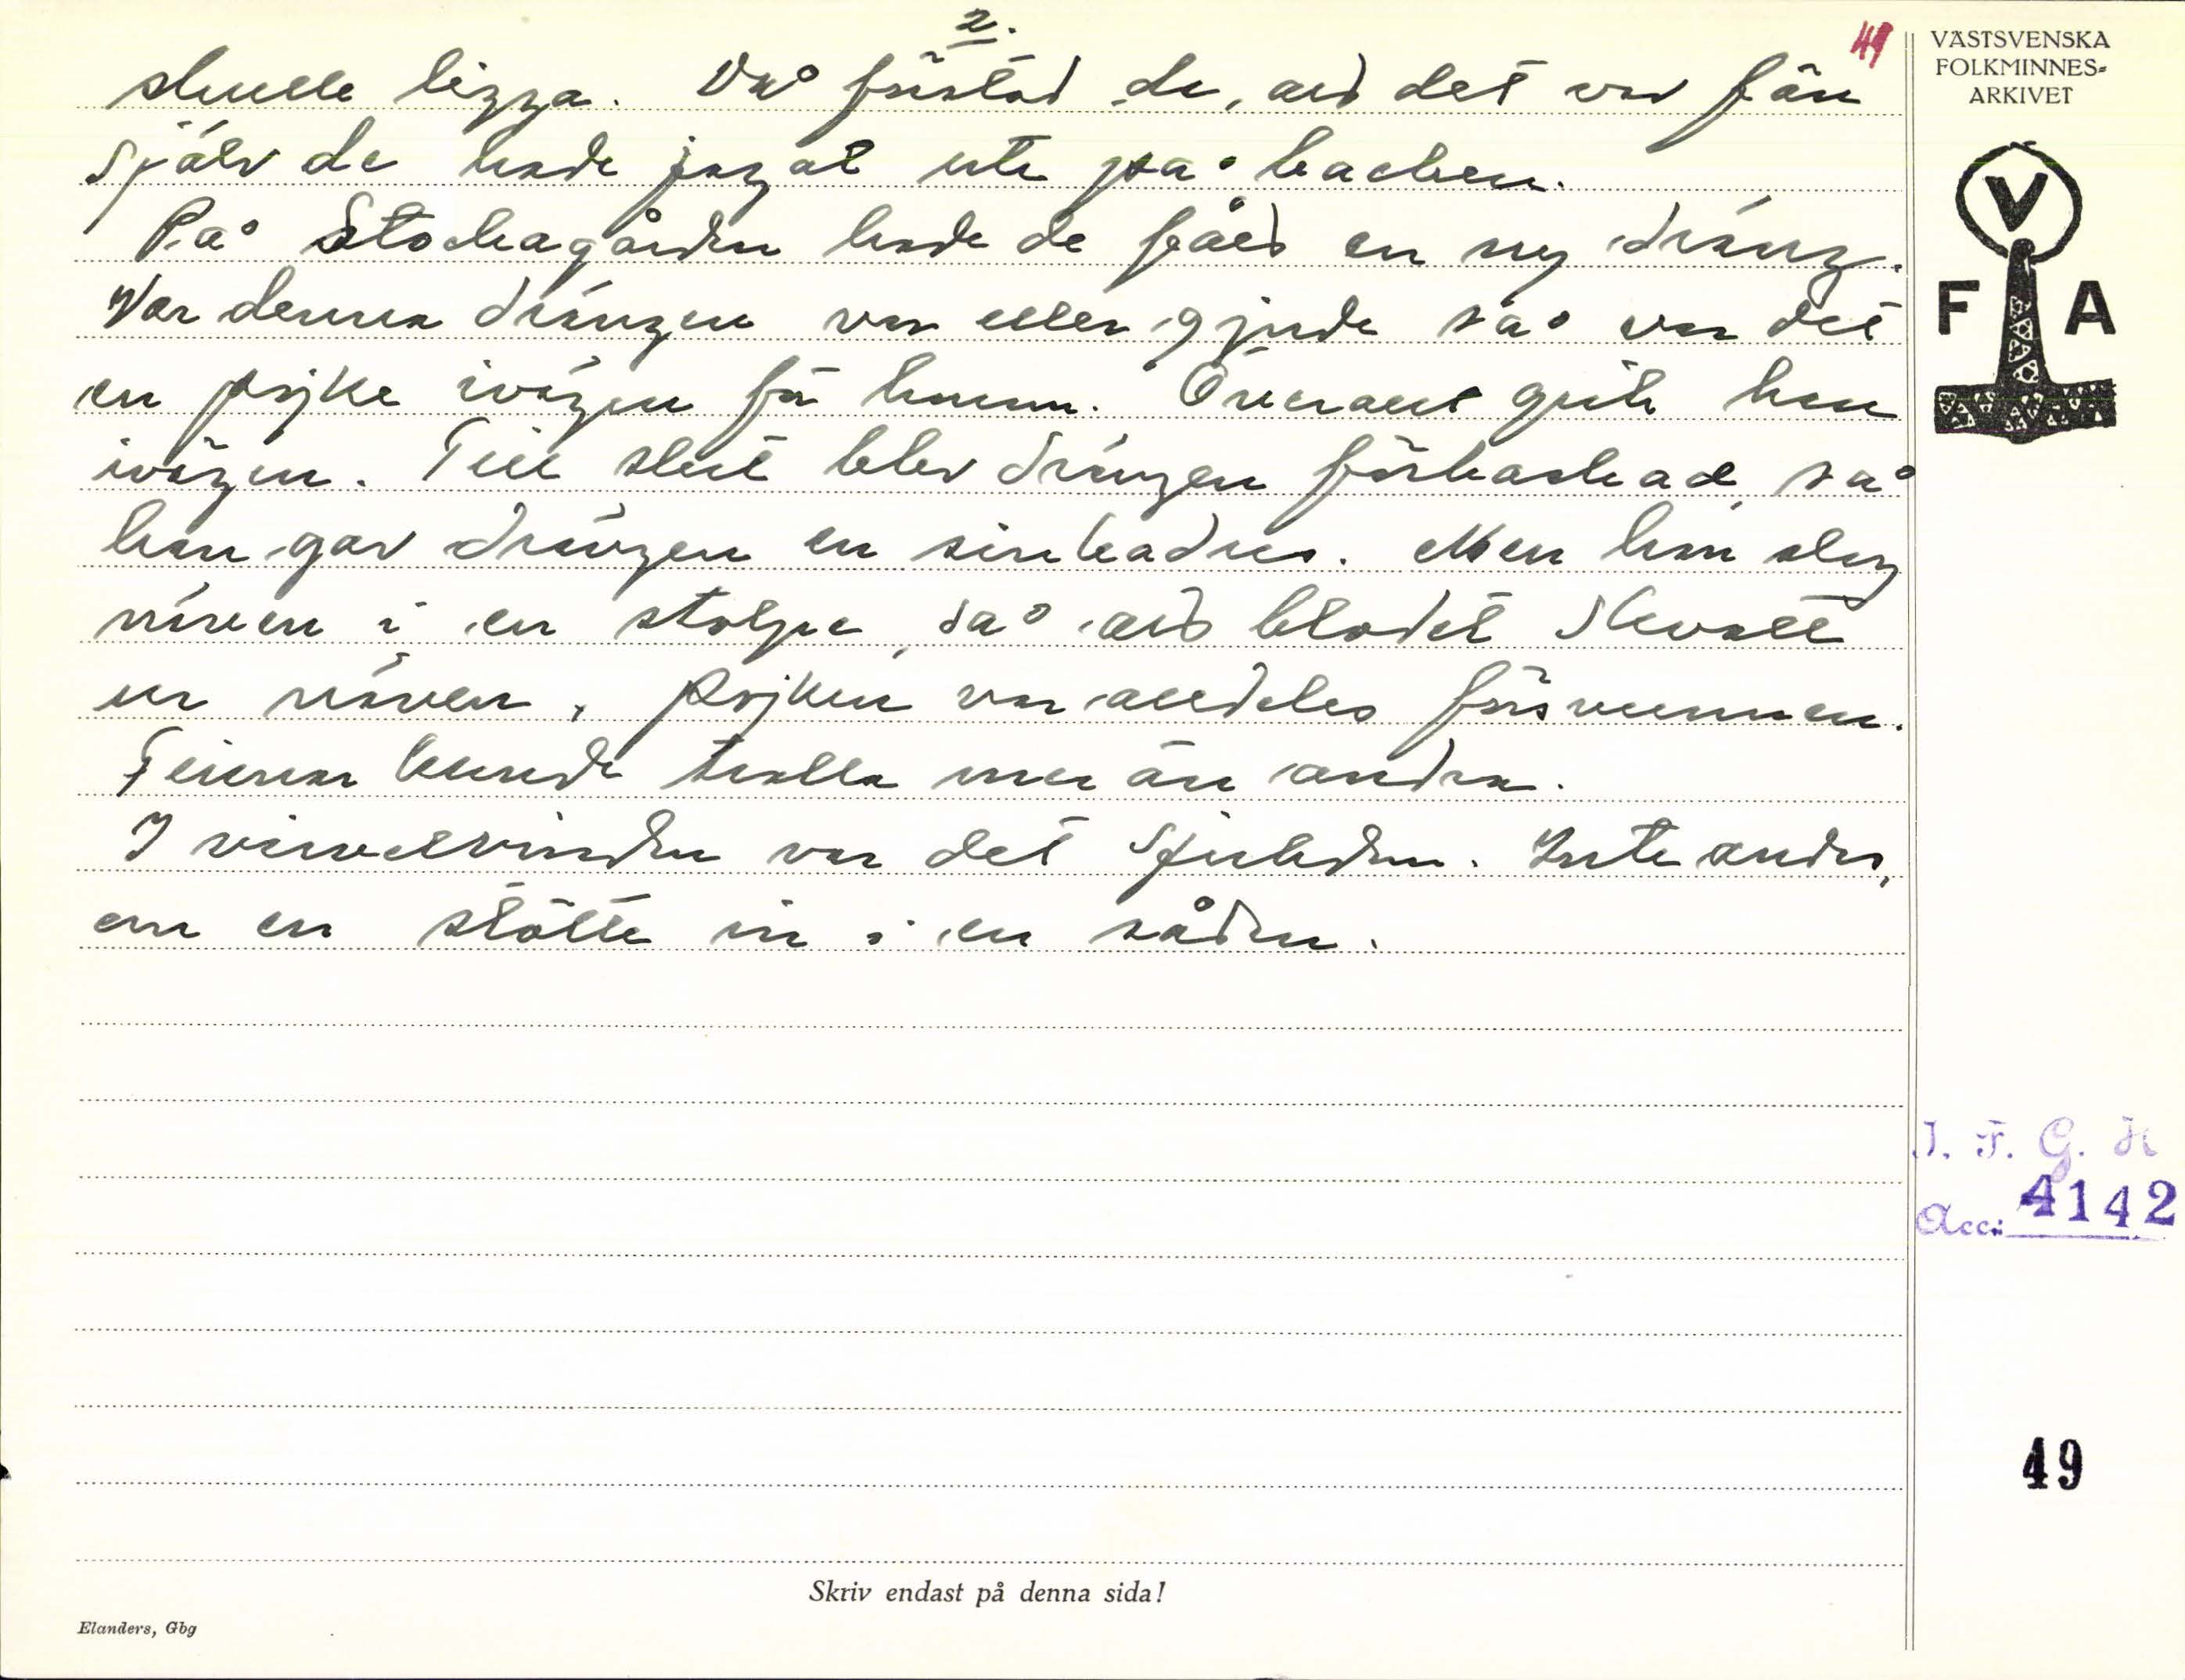 2.
49
skulle ligga. Då förstod de, att det var fän
själv de hade jagat ute på backen.
På Stockagården hade de fått en ny dräng.
Var denna drängen var eller gjorde så var det
en pojke ivägen för honom. Överallt gick han
ivägen. Till slut blev drängen förbaskad, så
han gav drängen en sinkadus. Men han slog
näven i en stolpe, så att blodet skvatt
ur näven, pojken var alldeles försvunnen.
Finnar kunde trolla mer än andra.
I virvelvinden var det spiriken. Inte andes,
om en stötte in i en såden.
VÄSTSVENSKA
FOLKMINNES=
ARKIVET
V
F A
I. F. G. H
Acc: 4142
49
Skriv endast på denna sida!
Elanders, Gbg